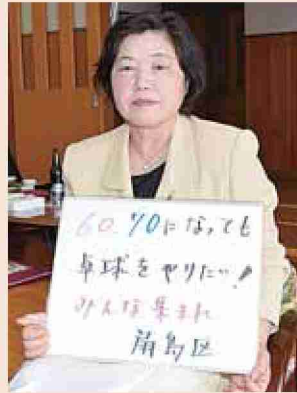 60.70になっても
卓球をやりたい!
みんな集まれ
南島区